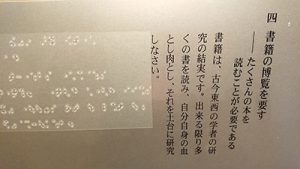 四 書籍の博覧を要す
――たくさんの本を
読むことが必要である
書籍は、古今東西の学者の研
究の結実です。出来る限り多
くの書を読み、自分自身の血
とし肉とし、それを土台に研究
しなさい。